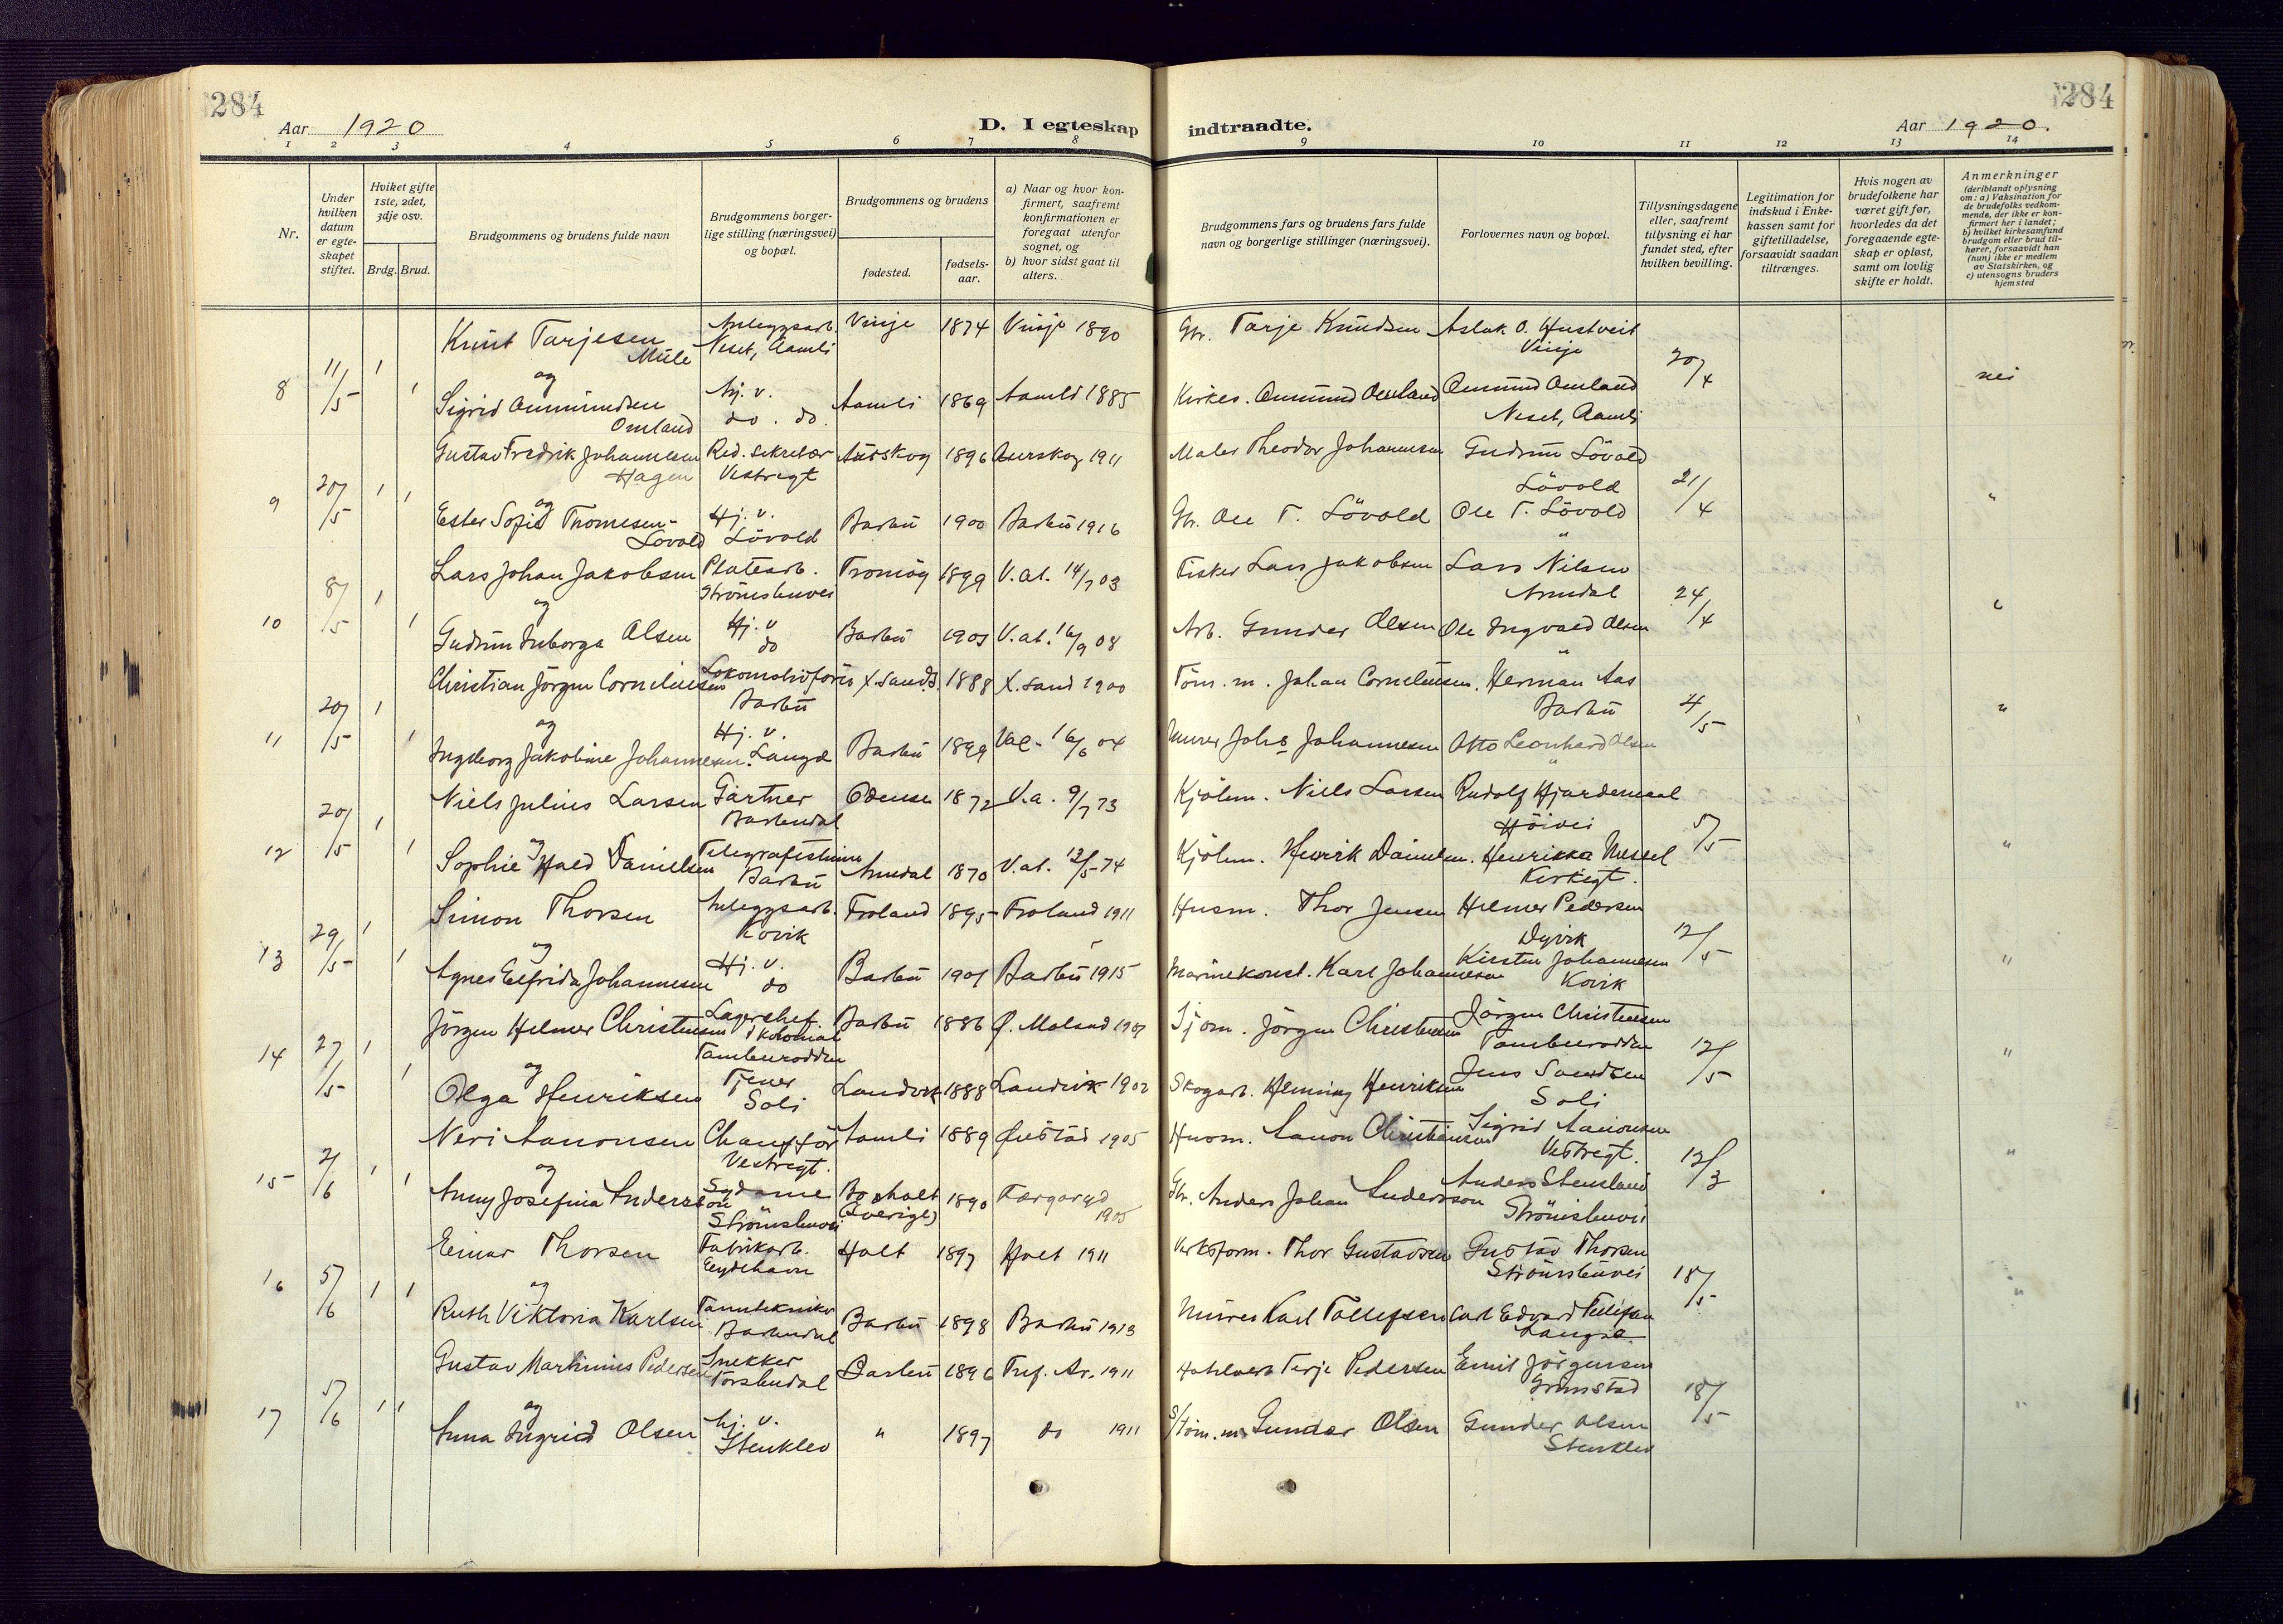 284
284
Aar 1920
D. I egteskap indtraadte.
Aar 1920.
1 2 3 4 5 6 7 8 9 10 11 12 13 14
Nr.
Under hvilken datum er egteskapet stiftet.
Hvilket gifte 1ste, 2det, 3dje osv.
Brdg. Brud.
Brudgommens og brudens fulde navn
Brudgommens borgerlige stilling (næringsvei) og bopæl.
Brudgommens og brudens
fødested.
fødselsaar.
a) Naar og hvor konfirmert, saafremt konfirmationen er foregaat utenfor sognet, og
b) hvor sidst gaat til alters.
Brudgommens fars og brudens fars fulde navn og borgerlige stillinger (næringsvei).
Forlovernes navn og bopæl.
Tillysningsdagene eller, saafremt tillysning ei har fundet sted, efter hvilken bevilling.
Legitimation for indskud i Enkekassen samt for giftetilladelse, forsaavidt saadan tiltrænges.
Hvis nogen av brudefolkene har været gift før, hvorledes da det foregaaende egteskap er opløst, samt om lovlig skifte er holdt.
Anmerkninger
(deriblandt oplysning om: a) Vaksination for de brudefolks vedkommende, der ikke er konfirmert her i landet; b) hvilket kirkesamfund brudgom eller brud tilhører, forsaavidt han (hun) ikke er medlem av Statskirken, og c) utensogns bruders hjemsted
8 11/5 1 1
Knut Tarjesen Mule Anleggsarb. Neset, Aamli Vinje 1874 Vinje 1890 Gbr. Tarje Knudsen Aslak O. Hustveit Vinje 20/4 nei
og
Sigrid Ommundsen Omland hj. v. do. do. Aamli 1869 Aamli 1885 Kirkes. Ommund Omland Ommund Omland Neset, Aamli
9 20/5 1 1
Gustav Fredrik Johannesen Hagen Red. sekretær Vestregt Aurskog 1896 Aurskog 1911 Maler Theodor Johannesen Gudrun Lövold Lövold 21/4 "
og
Ester Sofie Thomesen-Lovold Hj. v. Lövold Barbu 1900 Barbu 1916 Gbr. Ole T. Lövold Ole T. Lövold "
10 8/5 1 1
Lars Johan Jakobsen Platearb. Strömsbuvei Tromöy 1899 V.at. 14/7 03 Fisker Lars Jakobsen Lars Nilsen Arendal 24/4 "
og
Gudrun Inborga Olsen Hj. v do Barbu 1901 V.at. 16/9 08 Arb. Gunder Olsen Ole Ingvald Olsen "
11 20/5 1 1
Christian Jörgen Corneliussen Lokomotivförer Barbu X.sand S. 1888 X.sand 1900 Töm. m. Johan Corneliussen. Herman Aas Barbu 4/5 "
og
Ingeborg Jakobine Johannesen. Hj. v. Langø Barbu 1899 Vac. 16/6 04 Murer Johs Johannesen Otto Leonhard Olsen "
12 20/5 1 1
Niels Julius Larsen Gartner Barbudal Odense 1872 V.a. 9/7 73 Kjöbm. Niels Larsen Rudolf Hjardemaal Höivei 5/5 "
og
Sophie Hald Danielsen Telegrafistinne Barbu Arendal 1870 V.at. 12/5 74 Kjöbm. Henrik Danielsen. Henrikka Nessel Kirkegt.
13 29/5 1 1
Simon Thorsen Anleggsarb. Kovik Froland 1895 Froland 1911 Husm. Thor Jensen Helmer Pedersen Dyvik 12/5 "
og
Agnes Elfrida Johannesen Hj. v. do Barbu 1901 Barbu 1915 Marinekonst. Karl Johannesen Kirsten Johannesen Kovik
14 27/5 1 1
Jörgen Helmer Christensen Lagerchef. i kolonial Tamburodden Barbu 1886 Ø. Moland 1901 Sjöm. Jörgen Christensen Jörgen Christensen Tamburodden 12/5 "
og
Olga Henriksen Tjener Soli Landvik 1888 Landvik 1902 Skogarb. Henning Henriksen Jens Sandsen Soli
15 2/6 1 1
Neri Aanonsen Chaufför Vestregt. Aamli 1889 Øiestad 1905 Husm. Aanon Christiansen Sigrid Aanonsen Vestregt. 12/3 "
og
Anny Josefina Andersson Sydame Strömsbuvei Boxholt (Sverige) 1890 Færgaryd 1905 Gbr. Anders Johan Andersson Anders Stensland Strömsbuvei
16 5/6 1 1
Einar Thorsen Fabrikarb. Eydehavn Holt 1897 Holt 1911 Verksform. Thor Gustavsen Gustav Thorsen Strömsbuvei 18/5 "
og
Ruth Viktoria Karlsen Tanntekniker Barbudal Barbu 1898 Barbu 1913 Murer Karl Tollefsen Carl Edvard Tellefsen Langsæ
17 5/6 1 1
Gustav Martinius Pedersen Snekker Torsbudal Barbu 1896 Tref. Ar. 1911 Terje Pedersen Emil Jörgensen Grimstad 18/5 "
og
Anna Ingrid Olsen hj. v. Stenklev " 1897 do 1911 Töm. m. Gunder Olsen Gunder Olsen Stenklev